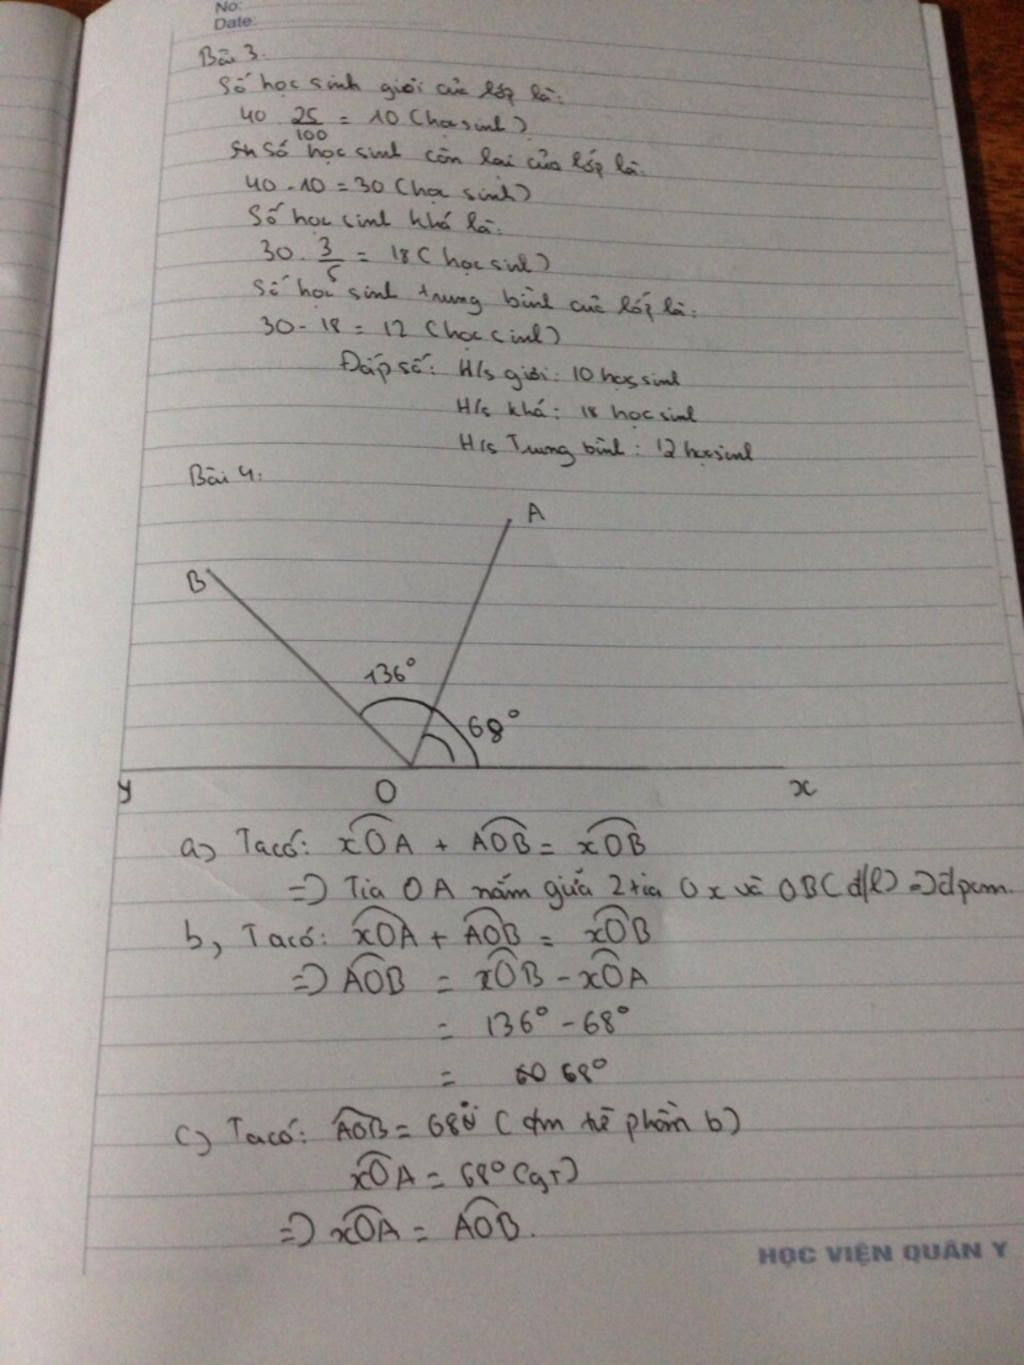 No:
Date:
Bài 3.
Số học sinh giỏi của lớp là:
40 . 25/100 = 10 (học sinh)
Số học sinh còn lại của lớp là:
40 - 10 = 30 (học sinh)
Số học sinh khá là:
30 . 3/5 = 18 (học sinh)
Số học sinh trung bình của lớp là:
30 - 18 = 12 (học sinh)
Đáp số: H/s giỏi: 10 học sinh
H/s khá: 18 học sinh
H/s Trung bình: 12 học sinh
Bài 4:
A
B
136°
68°
y
O
x
a) Ta có: xOA + AOB = xOB
=> Tia OA nằm giữa 2 tia Ox và OB (đ/l) => đpcm.
b, Ta có: xOA + AOB = xOB
=> AOB = xOB - xOA
= 136° - 68°
= 68°
c) Ta có: AOB = 68° (cm từ phần b)
xOA = 68° (gt)
=> xOA = AOB.
HỌC VIỆN QUÂN Y